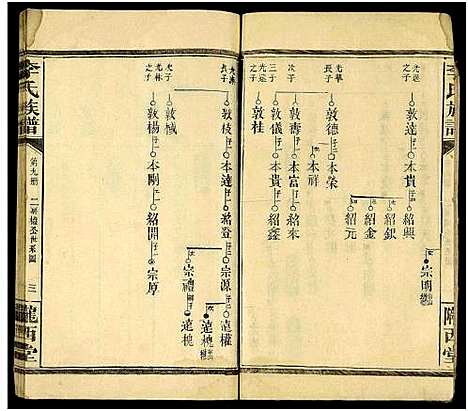 李氏族譜
光遠之子
敦達
本貴
紹興
宗明
紹銀
紹金
紹元
光華長子
敦德
本榮
本祥
次子
敦壽
本富
紹來
三子
敦儀
本貴
紹鑫
光遠之子
敦桂
光漆長子
敦枝
本達
紹登
宗源
遠權
遠槐
遠桃
宗禮
次子
敦棫
光林之子
敦楊
本剛
紹開
宗厚
李氏族譜
第九冊
世系圖
三
隴西堂
隴西堂